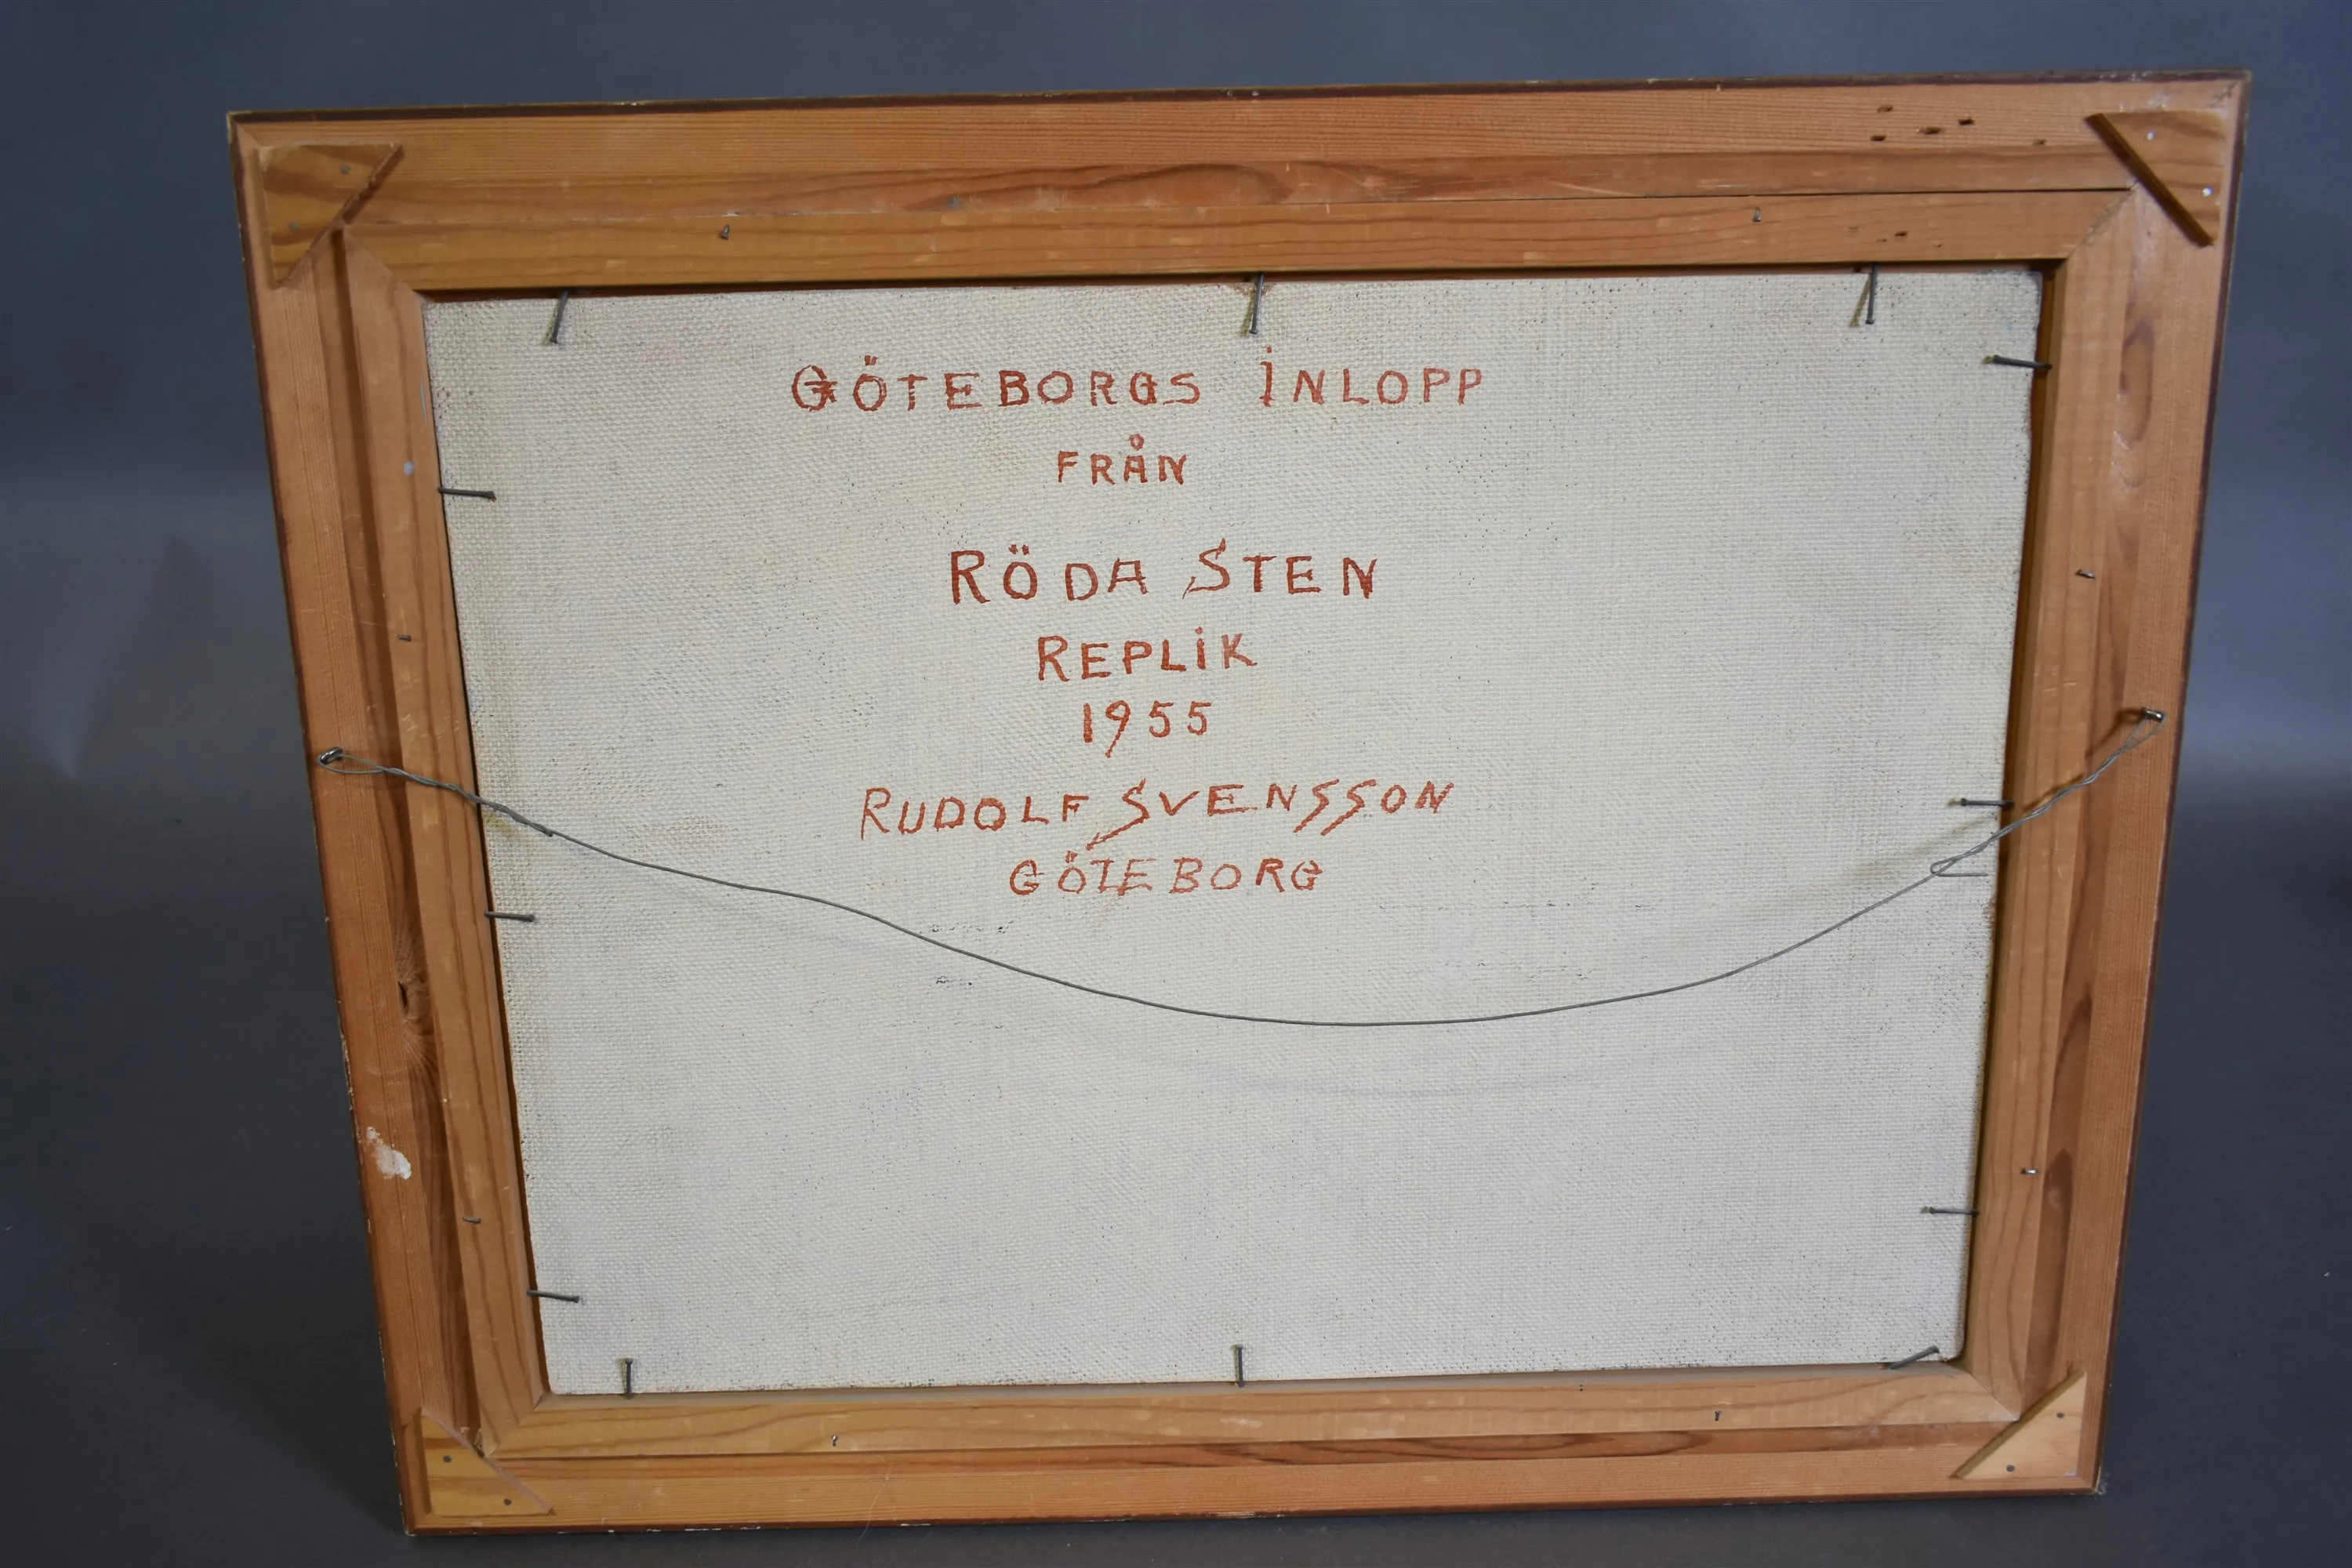 GÖTEBORGS INLOPP
FRÅN
RÖDA STEN
REPLIK
1955
RUDOLF SVENSSON
GÖTEBORG